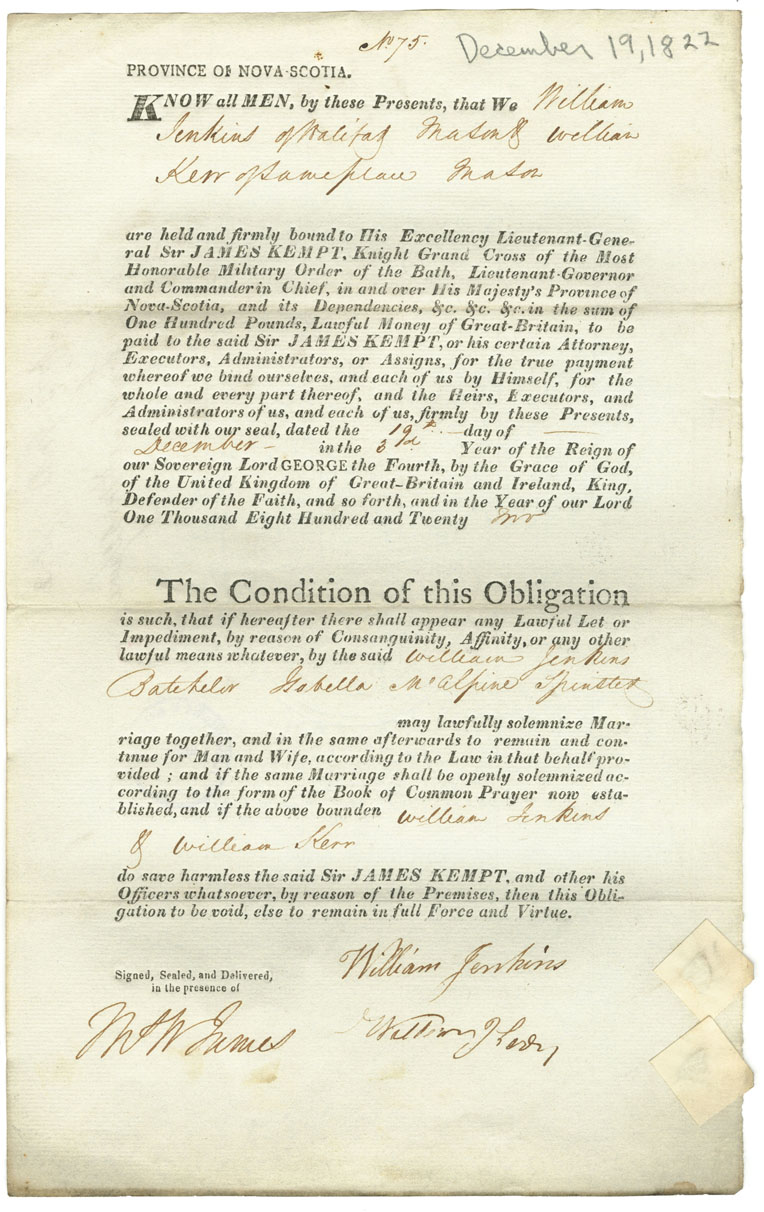 No 75.
December 19, 1822
PROVINCE OF NOVA-SCOTIA.
KNOW all MEN, by these Presents, that We William
Jenkins of Halifax Mason & William
Kerr of Same place Mason
are held and firmly bound to His Excellency Lieutenant-Gene-
ral Sir JAMES KEMPT, Knight Grand Cross of the Most
Honorable Military Order of the Bath, Lieutenant-Governor
and Commander in Chief, in and over His Majesty's Province of
Nova-Scotia, and its Dependencies, &c. &c. &c. in the sum of
One Hundred Pounds, Lawful Money of Great-Britain, to be
paid to the said Sir JAMES KEMPT, or his certain Attorney,
Executors, Administrators, or Assigns, for the true payment
whereof we bind ourselves, and each of us by Himself, for the
whole and every part thereof, and the Heirs, Executors, and
Administrators of us, and each of us, firmly by these Presents,
sealed with our seal, dated the 19th day of
December in the 3d Year of the Reign of
our Sovereign Lord GEORGE the Fourth, by the Grace of God,
of the United Kingdom of Great-Britain and Ireland, King,
Defender of the Faith, and so forth, and in the Year of our Lord
One Thousand Eight Hundred and Twenty two
The Condition of this Obligation
is such, that if hereafter there shall appear any Lawful Let or
Impediment, by reason of Consanguinity, Affinity, or any other
lawful means whatever, by the said William Jenkins
Batchelor Isabella McAlpine Spinster
may lawfully solemnize Mar-
riage together, and in the same afterwards to remain and con-
tinue for Man and Wife, according to the Law in that behalf pro-
vided ; and if the same Marriage shall be openly solemnized ac-
cording to the form of the Book of Common Prayer now esta-
blished, and if the above bounden William Jenkins
& William Kerr
do save harmless the said Sir JAMES KEMPT, and other his
Officers whatsoever, by reason of the Premises, then this Obli-
gation to be void, else to remain in full Force and Virtue.
William Jenkins
Signed, Sealed, and Delivered,
in the presence of
James